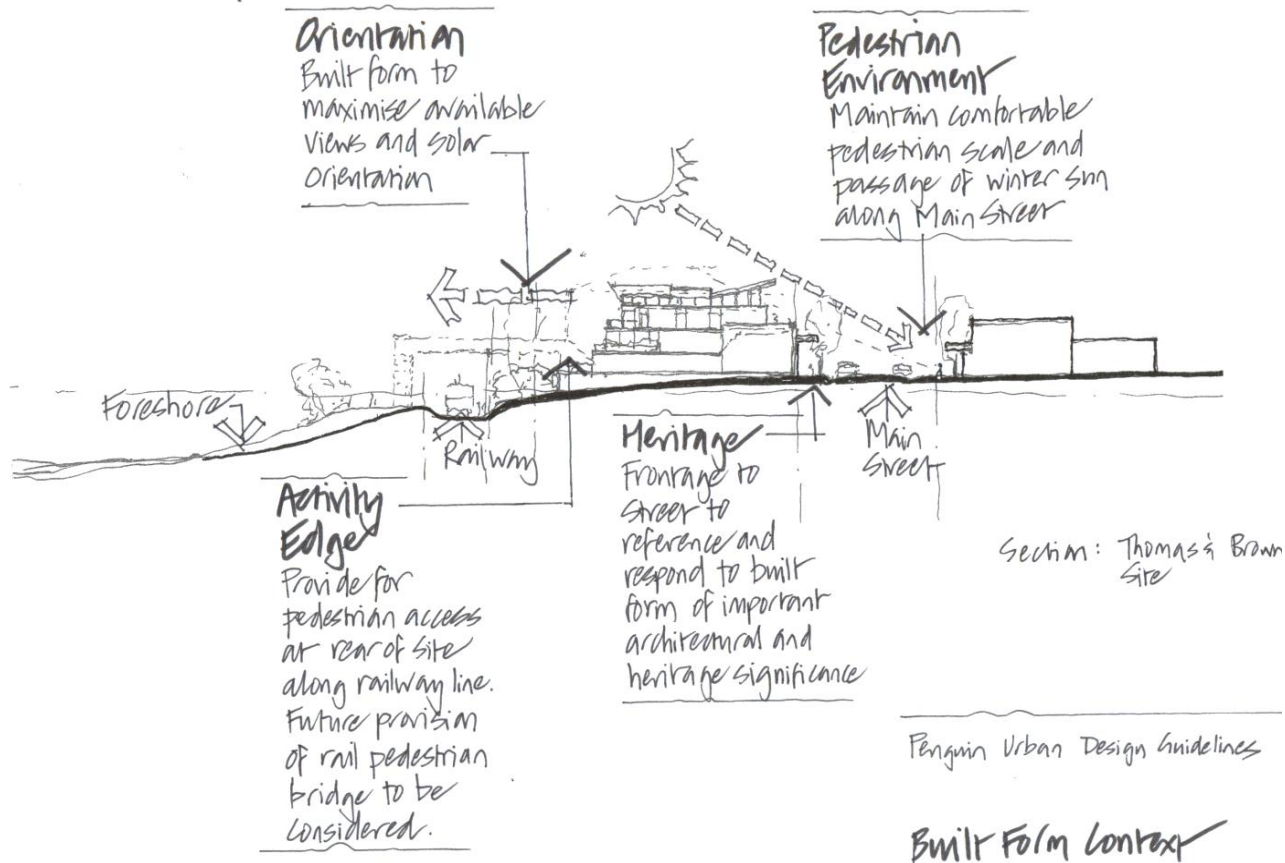 Orientation
Built form to
maximise available
views and solar
orientation
Pedestrian
Environment
Maintain comfortable
pedestrian scale and
passage of winter sun
along Main Street
Foreshore
Railway
Main
Street
Activity
Edge
Provide for
pedestrian access
at rear of site
along railway line.
Future provision
of rail pedestrian
bridge to be
considered.
Heritage
Frontage to
street to
reference and
respond to built
form of important
architectural and
heritage significance
Section: Thomas & Brown
Site
Penguin Urban Design Guidelines
Built Form Context